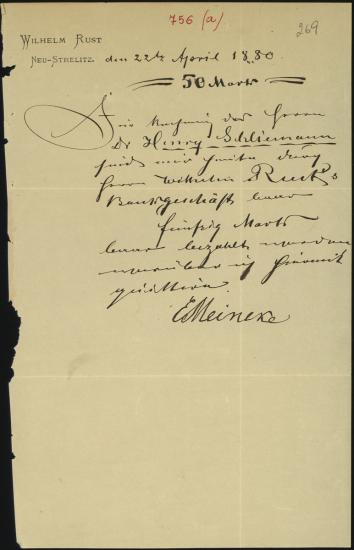 756 (a)
269
WILHELM RUST
NEU-STRELITZ.
den 22ten April 1880.
50 Mark
Für Rechnung des Herrn
Dr Henry Schliemann
sind mir heute durch
Herrn Wilhelm Rust's
Bankgeschäft baar
fünfzig Mark
baar bezahlt worden
worüber ich hiermit
quittire.
E Meincke